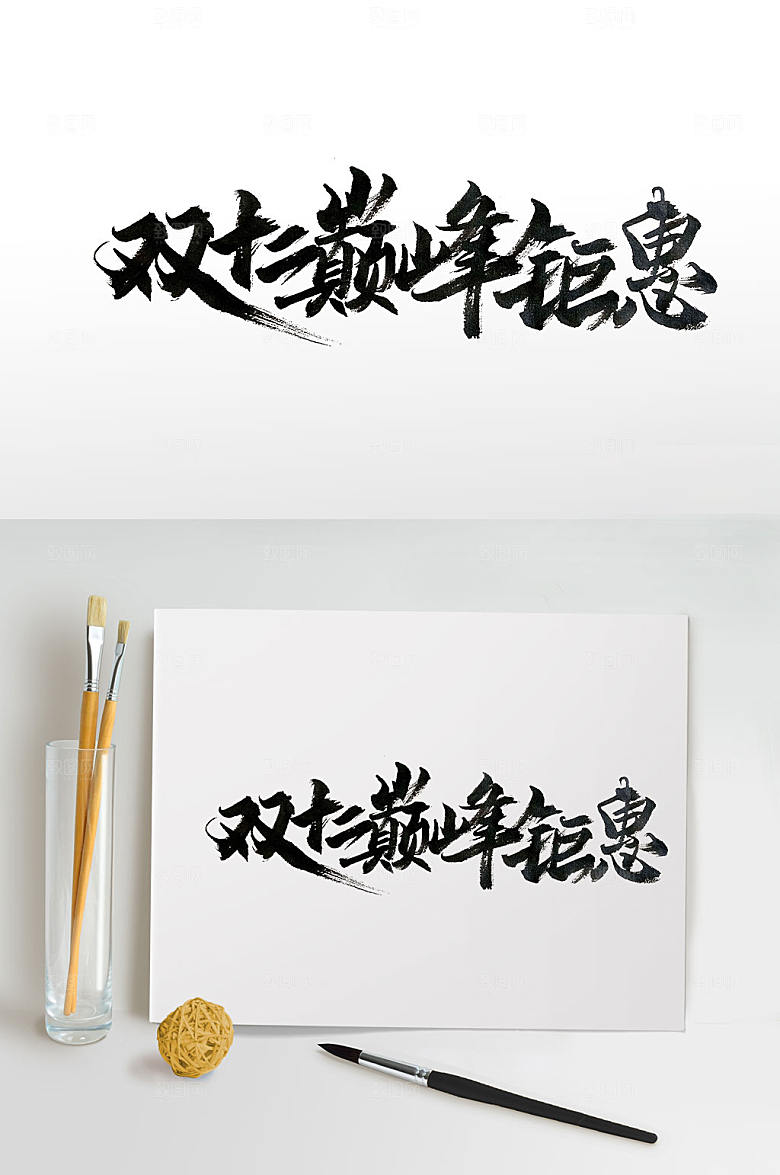 双十二巅峰钜惠
双十二巅峰钜惠